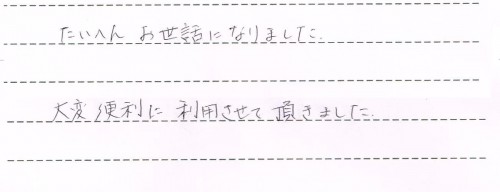 たいへん お世話になりました.
大変便利に 利用させて 頂きました.